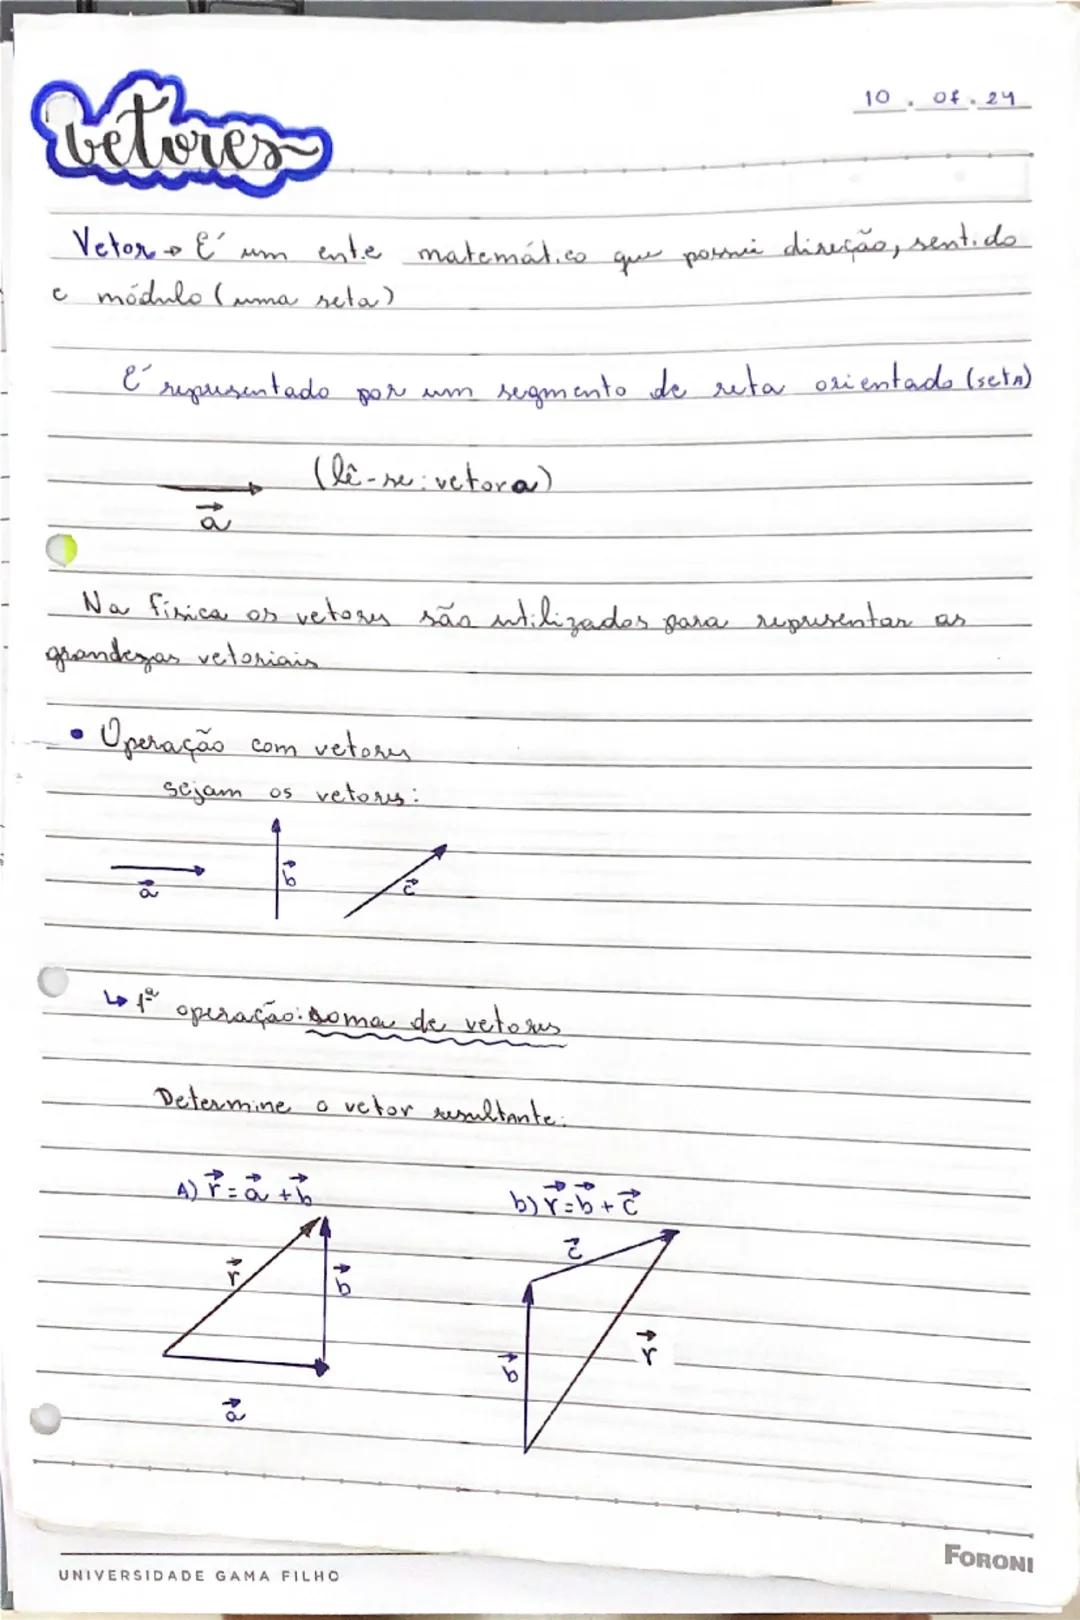 vetores
10 . 07 . 24
Vetor → É um ente matemático que possui direção, sentido
e módulo (uma reta)
É representado por um segmento de reta orientado (seta)
(lê-se: vetor a)
a⃗
Na física os vetores são utilizados para representar as
grandezas vetoriais
• Operação com vetores
sejam os vetores:
a⃗ b⃗ c⃗
↳ 1ª operação: soma de vetores
Determine o vetor resultante:
A) r⃗ = a⃗ + b⃗ b) r⃗ = b⃗ + c⃗
c⃗
r⃗ b⃗
b⃗ r⃗
a⃗
FORONI
UNIVERSIDADE GAMA FILHO